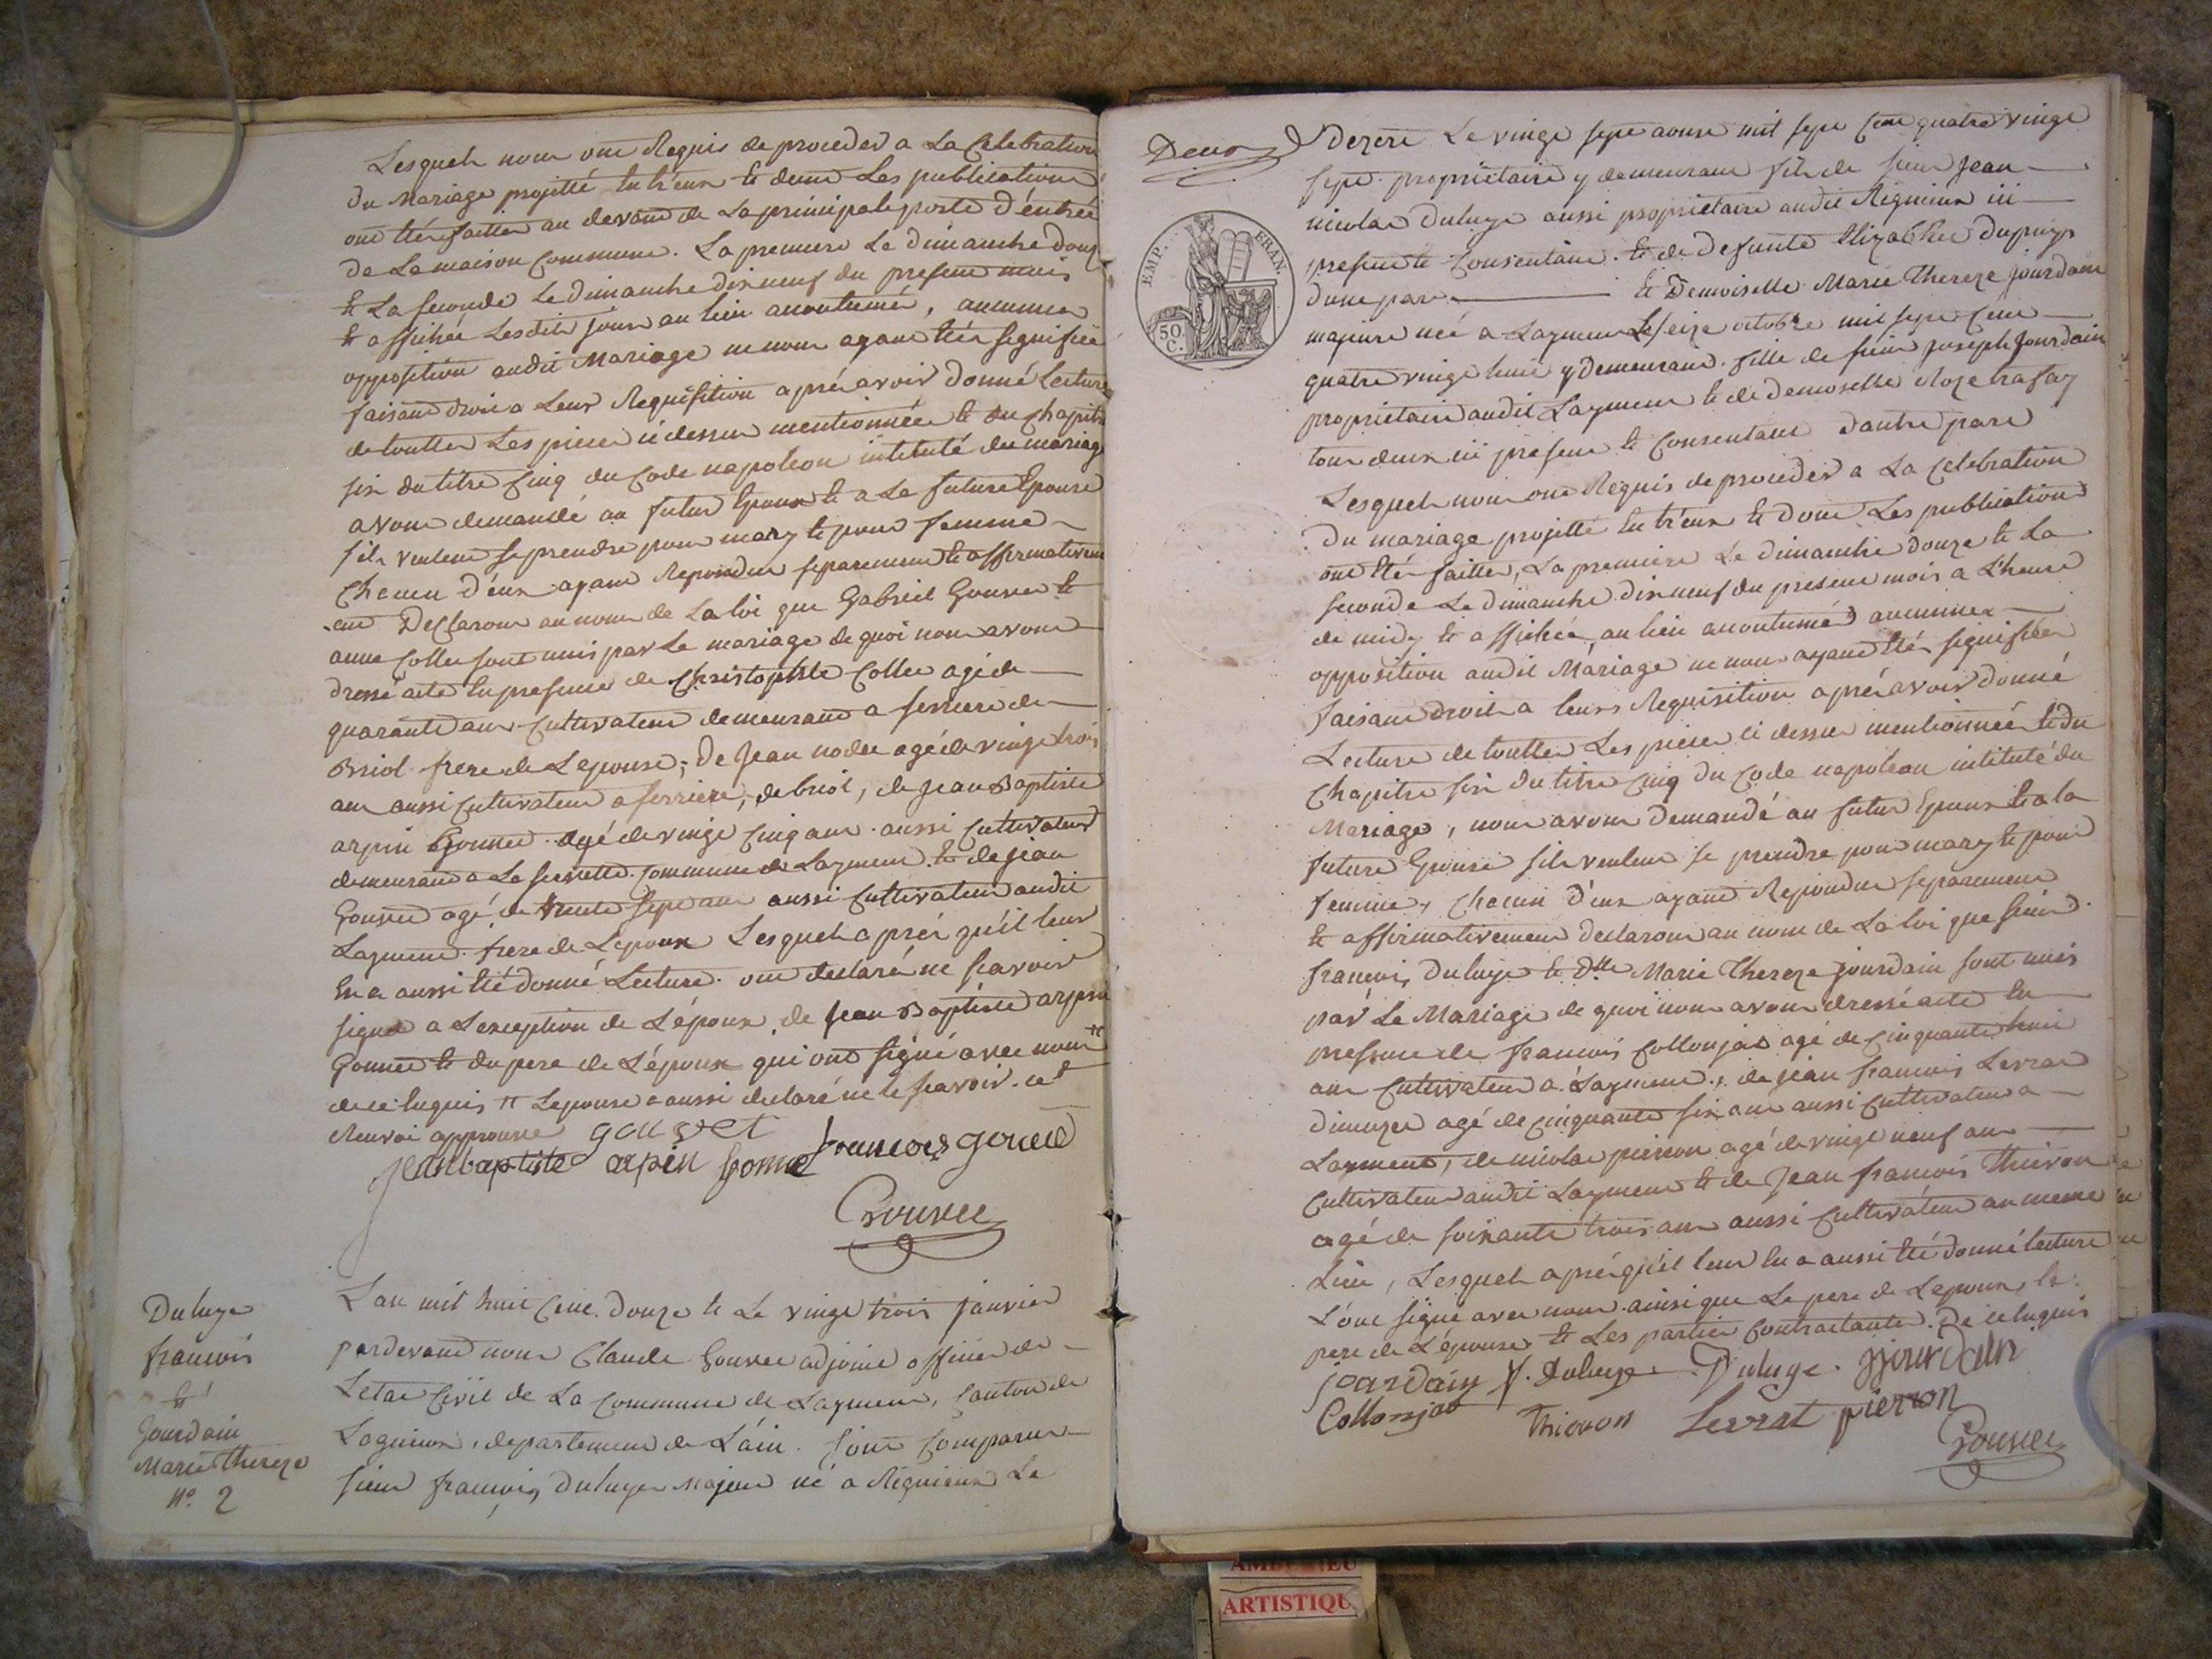 Lesquels nous ont Requis de proceder a La Celebration
du Mariage projetté Entr'eux et dont Les publications
ont étés faittes au devant de La principale porte d'entrée
de La maison commune. La premiere Le dimanche douze
et La seconde Le dimanche dix neuf du present mois
et affichée Lesdits jours au lieu accoutumé, aucunes
opposition audit Mariage ne nous ayant étés signifiée
faisant droit a Leur Requisition après avoir donné Lecture
de touttes Les pieces ci dessus mentionnées et du Chapitre
six du titre Cinq du Code napoleon intitulé du mariage
avons demandé au futur Epoux et a La future Epouse
s'ils veulent se prendre pour mary et pour femme
Chacun d'eux ayant Repondus separement et affirmativem
ent Declarons au nom de La loi que Gabriel Gouvet et
anne Collet sont unis par Le mariage de quoi nous avons
dressé acte En presence de Christophle Collet agé de
quarante ans Cultivateur demeurant a ferriere de
Briol frere de L'epouse; De Jean nodet agé de vingt trois
ans aussi Cultivateur a ferriere, de briol, de Jean Baptiste
arpin Gonnet agé de vingt Cinq ans aussi Cultivateur
demeurant a La serrette Commune de Lagment et de Jean
Gouvet agé de trente sept ans aussi Cultivateur audit
Lagment frere de L'epoux Lesquels après qu'il leur
En a aussi été donné Lecture ont declaré ne scavoir
signer a L'exception de L'époux, de Jean Baptiste arpin
Gonnet et du pere de L'époux qui ont signé avec nous #
de ce Enquis # L'epouse a aussi declaré ne le scavoir. ce
Renvoi approuvé gouvet francois gouvet
jean baptiste arpin gonnet
Gouvet
Duluye
francois
et
Jourdain
Marie Thereze
n° 2
L'an mil huit Cent douze et Le vingt trois janvier
pardevant nous Claude Gouvet adjoint officier de
L'etat Civil de La Commune de Lagment, Canton de
Lagnieux, departement de L'ain. sont Comparus
sieur francois Duluye Majeur né a Rignieux Le
Deux
Dezert Le vingt sept aoust mil sept Cent quatre vingt
sept proprietaire y demeurant fils de sieur Jean
nicolas Duluye aussi proprietaire audit Rignieux ici
present et Consentant. et de defunte Elizabhet Dupuys
d'une part et Demoiselle Marie Thereze Jourdain
majeure née a Lagment Le seize octobre mil sept Cent
quatre vingt huit y Demeurant fille de sieur Joseph Jourdain
proprietaire audit Lagment et de demoiselle Roze trafay
tous deux ici present et Consentant d'autre part
Lesquels nous ont Requis de proceder a La Celebration
du mariage projetté Entr'eux et dont Les publications
ont étés faittes, La premiere Le dimanche douze et La
seconde Le dimanche dix neuf du present mois a L'heure
de midy et affichée au lieu accoutumé aucunes
opposition audit Mariage ne nous ayant étés signifiées
faisant droit a leurs Requisition après avoir donné
Lecture de touttes Les pieces ci dessus mentionnée et du
Chapitre six du titre Cinq du Code napoleon intitulé du
Mariage, nous avons demandé au futur Epoux et a la
future Epouse s'ils veulent se prendre pour mary et pour
femme, Chacun d'eux ayant Repondus separement
et affirmativement declarons au nom de La loi que sieur
francois Duluye et Dlle Marie Thereze Jourdain sont unis
par Le Mariage de quoi nous avons dressé acte En
presence de francois Collonjat agé de Cinquante huit
ans Cultivateur a Lagment, de jean francois Levrat
agé de Cinquante six ans aussi Cultivateur a
Lagment, de nicolas pierron agé de vingt neuf ans
Cultivateur audit Lagment et de Jean francois Thievon
agé de soixante trois ans aussi Cultivateur au meme
Lieu, Lesquels après qu'il leur En a aussi été donné lecture
L'ont signé avec nous ainsi que Le pere de L'epoux, le
pere de L'épouse et Les parties Contractantes. De ce Enquis
jourdain f. Duluye Duluye jourdain
Collonjat Thievon Levrat pierron
Gouvet
EMP. FRAN.
50 C.
AMBERIEU
ARTISTIQU